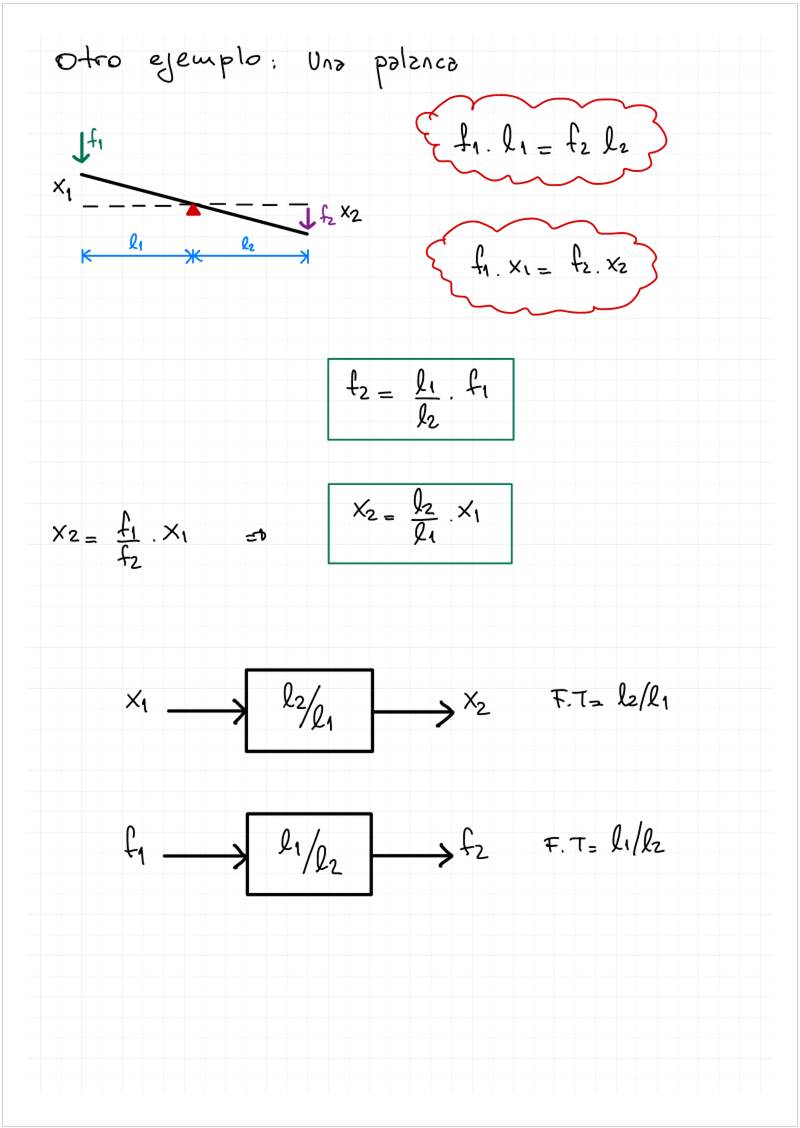 Otro ejemplo: Una palanca
f1
x1
f2 x2
l1 l2
f1 . l1 = f2 l2
f1 . x1 = f2 . x2
f2 = l1/l2 . f1
x2 = f1/f2 . x1 ⇒ x2 = l2/l1 . x1
x1 l2/l1 x2 F.T= l2/l1
f1 l1/l2 f2 F.T= l1/l2